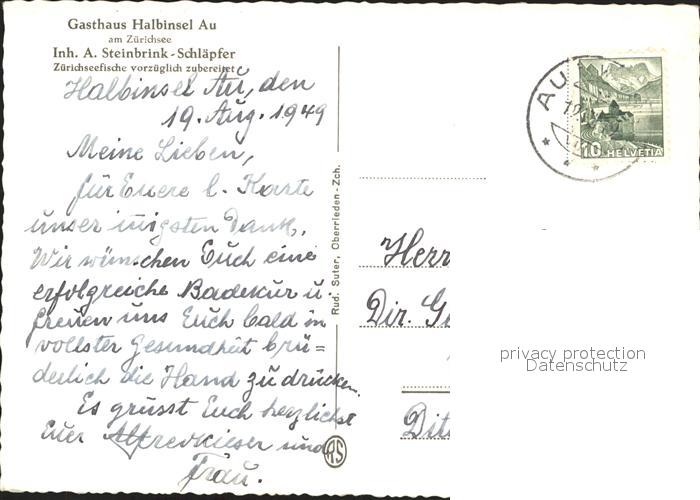 Gasthaus Halbinsel Au
am Zürichsee
Inh. A. Steinbrink-Schläpfer
Zürichseefische vorzüglich zubereitet
Halbinsel Au, den
19. Aug. 1949
Meine Lieben,
für Euere l. Karte
unser innigsten Dank.
Wir wünschen Euch eine
erfolgreiche Badekur u
freuen uns Euch bald in
vollster Gesundheit brü=
derlich die Hand zu drücken.
Es grüsst Euch herzlichst
Euer und
Frau.
Rud. Suter, Oberrieden-Zch.
RS
AU
10 HELVETIA
Herr
Dir.
privacy protection
Datenschutz